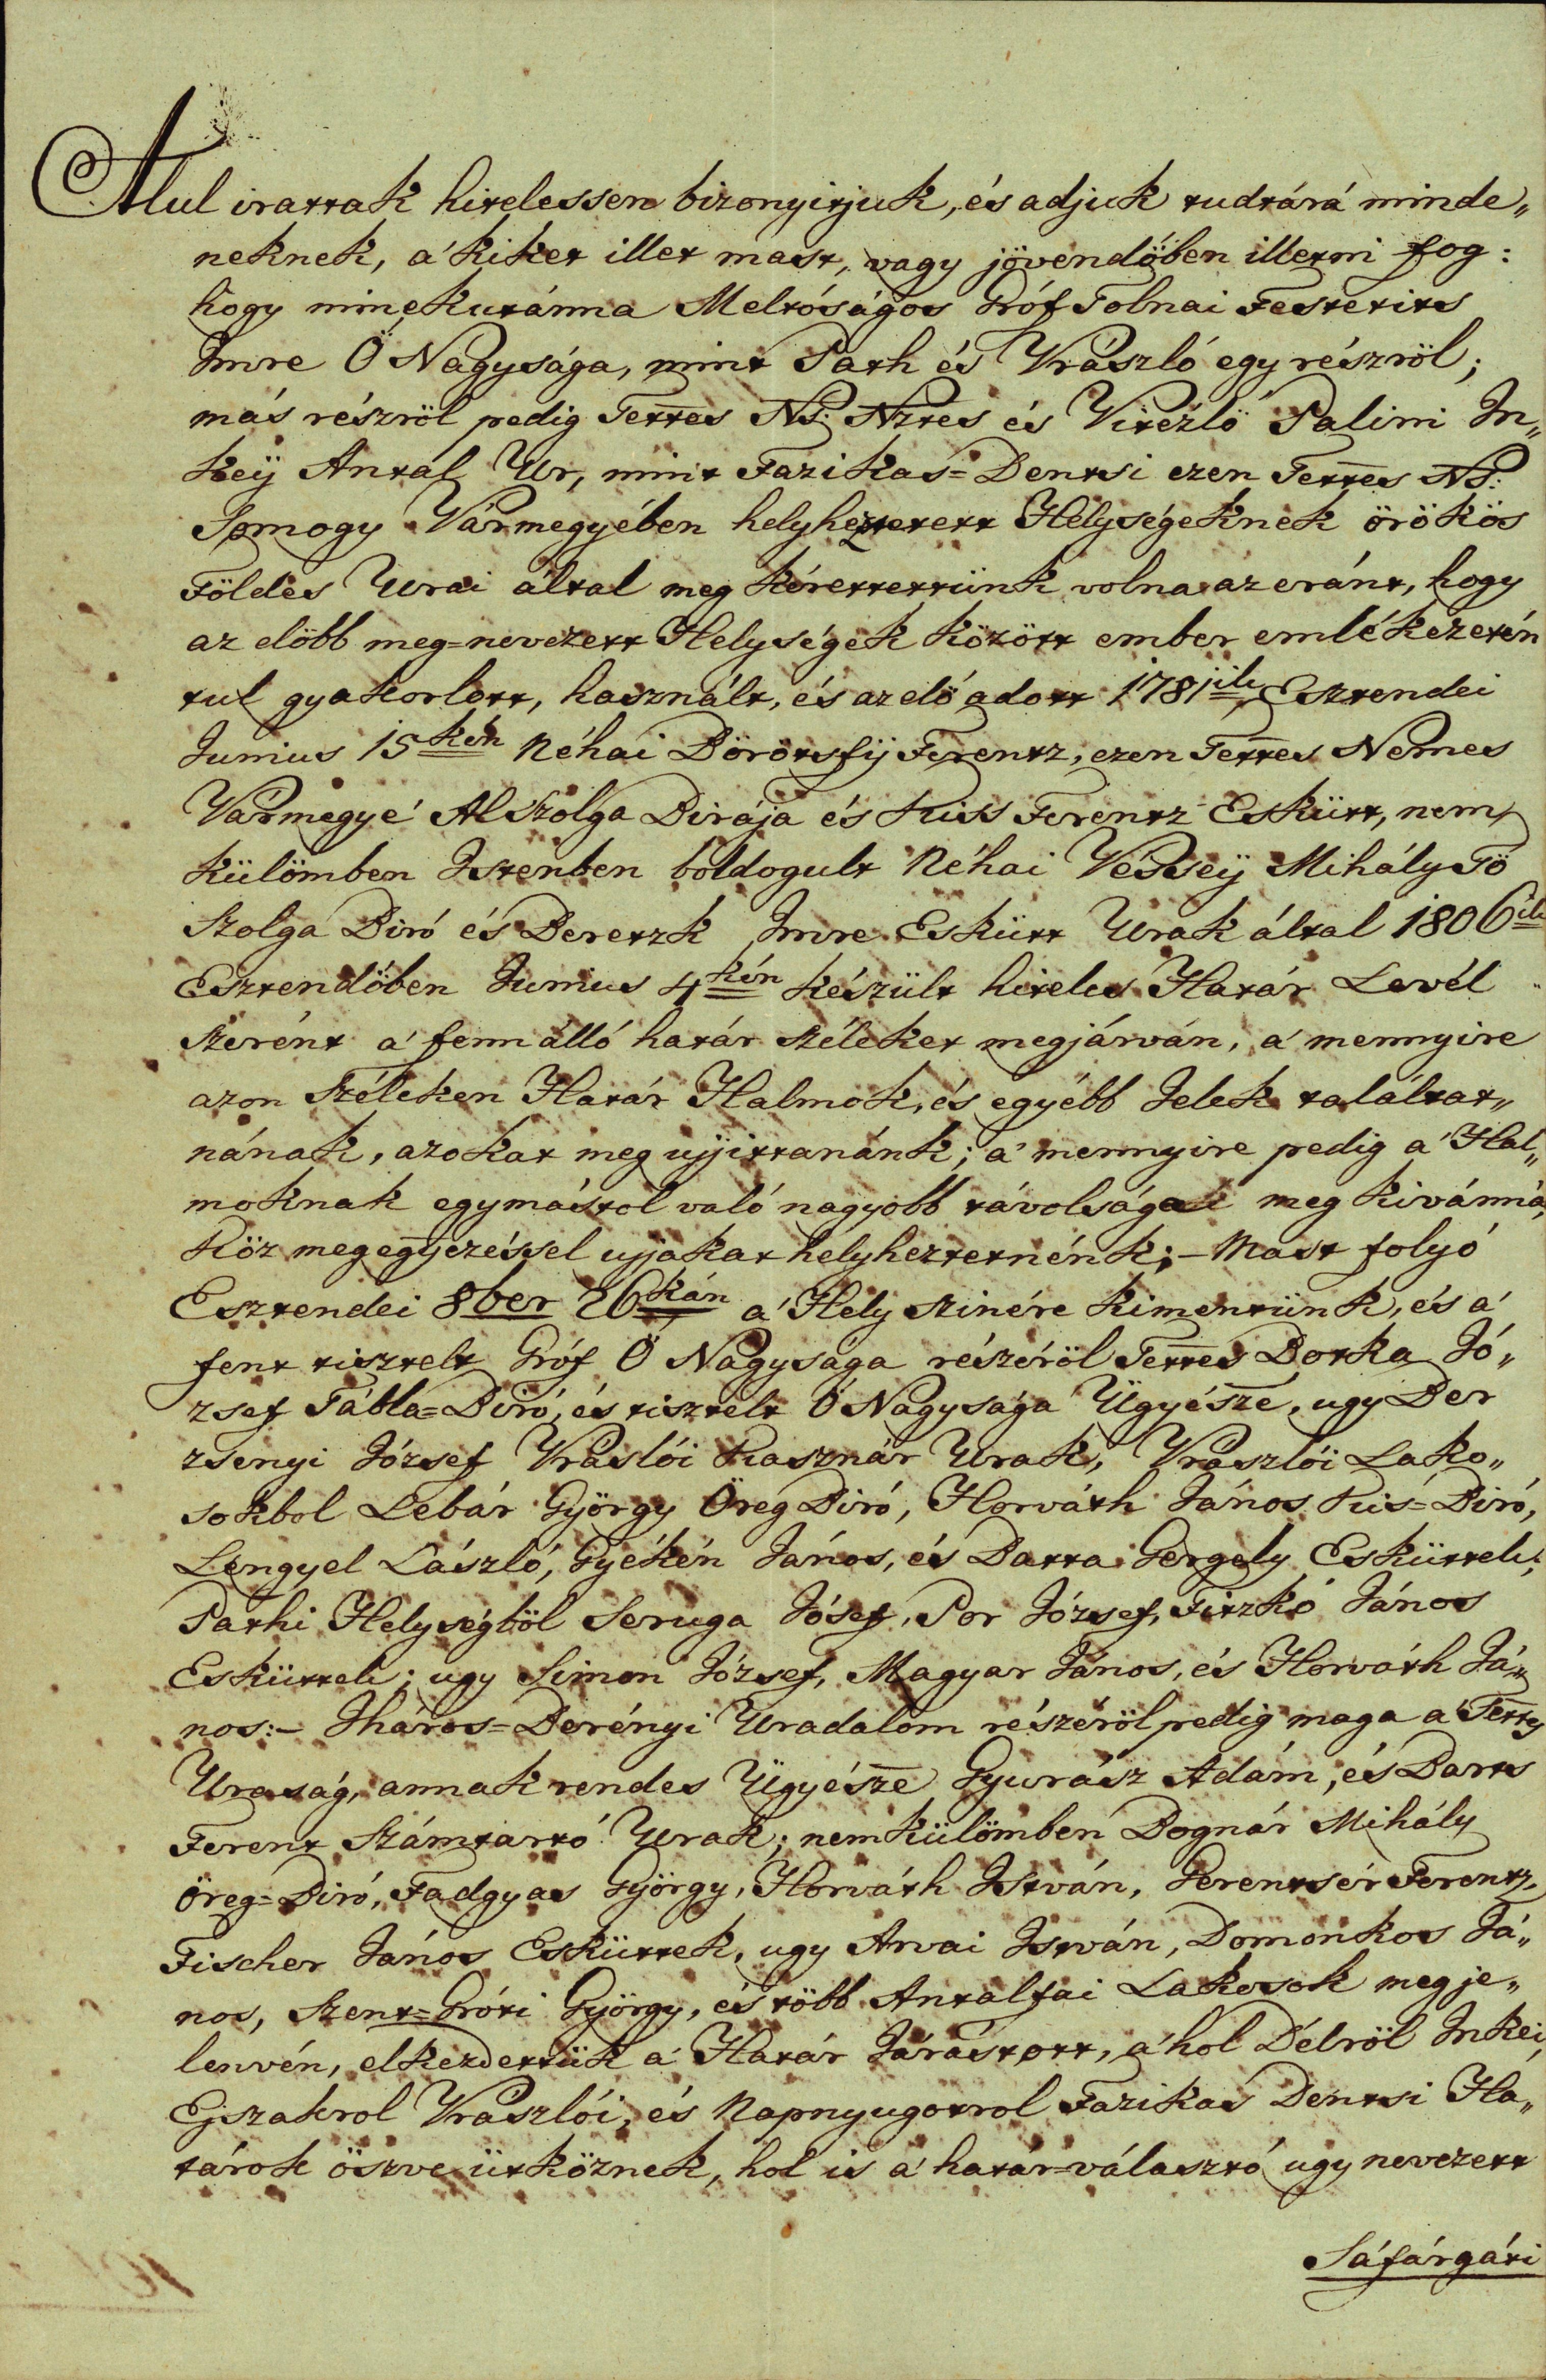 Alul irattak hitelessen bizonyitjuk, és adjuk tudtárá minde„
neknek, a' kiket illet mast, vagy jövendöben illetni fog:
hogy minekutánna Meltóságos Gróf Tolnai Festetits
Imre Ö Nagysága, mint Path és Vrászló egy részröl;
más részröl pedig Tettes Ns. Nztes és Vitézlö Palini In„
keÿ Antal Ur, mint Fazikas=Dentsi ezen Tettes Ns.
Somogy Vármegyében helyheztetett Helységeknek örökös
Földes Urai által meg kérettettünk volna az eránt, hogy
az elöbb meg=nevezett Helységek között ember emlékezetén
tul gyakorlott, használt, és az elö adott 1781ik Esztendei
Junius 15kén Néhai Börötsfÿ Ferentz, ezen Tettes Nemes
Vármegye' Al Szolga Birája és Kiss Ferentz Eskütt, nem
külömben Istenben boldogult Néhai VésseÿMihály Fö
Szolga Biró és Beretzk Imre Eskütt Urak által 1806ik
Esztendöben Junius 4kén készült hiteles Határ Levél
szerént a' fenn álló határ széleket megjárván, a' mennyire
azon Széleken Határ Halmok, és egyébb Jelek találtat„
nának, azokat meg ujjittanánk; a' mennyire pedig a' Hal„
moknak egymástol való nagyobb távolságai meg kivánná,
Köz megegyezéssel ujjakat helyheztetnénk; – Mast folyó
Esztendei 8ber 26kán a' Hely szinére kimentünk, és a'
fent tisztelt Gróf Ö Nagysága részéröl Tettes Botka Jó„
zsef Tábla=Biró, és tisztelt Ö Nagysága Ügyésze, ugy Ber
zsenyi József Vráslói Kasznár Urak, Vrászlói Lako„
sokbol Lebár György Öreg Biró, Horváth János Kis=Biró,
Lengyel László, Gyékén János, és Batta Gergely Esküttek;
Pathi Helységböl Seruga Jósef, Por József, Fitzkó János
Esküttek; ugy Simon József, Magyar János, és Horváth Já„
nos:– Iháros=Berényi Uradalom részéröl pedig maga a' Tettes
Uraság, annak rendes Ügyésze Gyurász Adám, és Barts
Ferent Számtartó Urak; nem külömben Bognár Mihály
Öreg=Biró, Fadgyas György, Horváth István, Gerentsér Ferentz,
Fischer János Esküttek, ugy Arvai István, Domonkos Já„
nos, Szent=Gróti György, és több Antalfai Lakosok megje„
lenvén, elkezdettük a' Határ Járást ott, a' hol Délröl Inkei,
Ejszakrol Vrászlói, és Napnyugotrol Fazikas Dentsi Ha„
tárok öszve ütköznek, hol is a' határ=választó ugy nevezett
Sáfárgáti